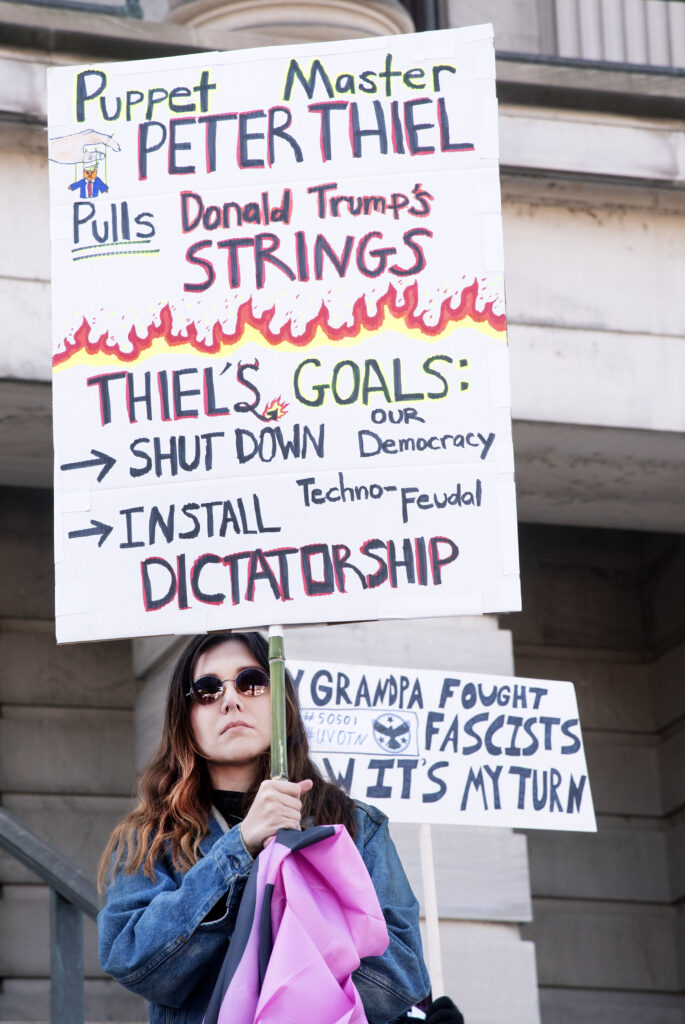 Puppet Master
PETER THIEL
Pulls Donald Trump's
STRINGS
THIEL'S GOALS:
→ SHUT DOWN OUR Democracy
→ INSTALL Techno-Feudal
DICTATORSHIP
Y GRANDPA FOUGHT
#50501
#UVOTN
FASCISTS
W IT'S MY TURN